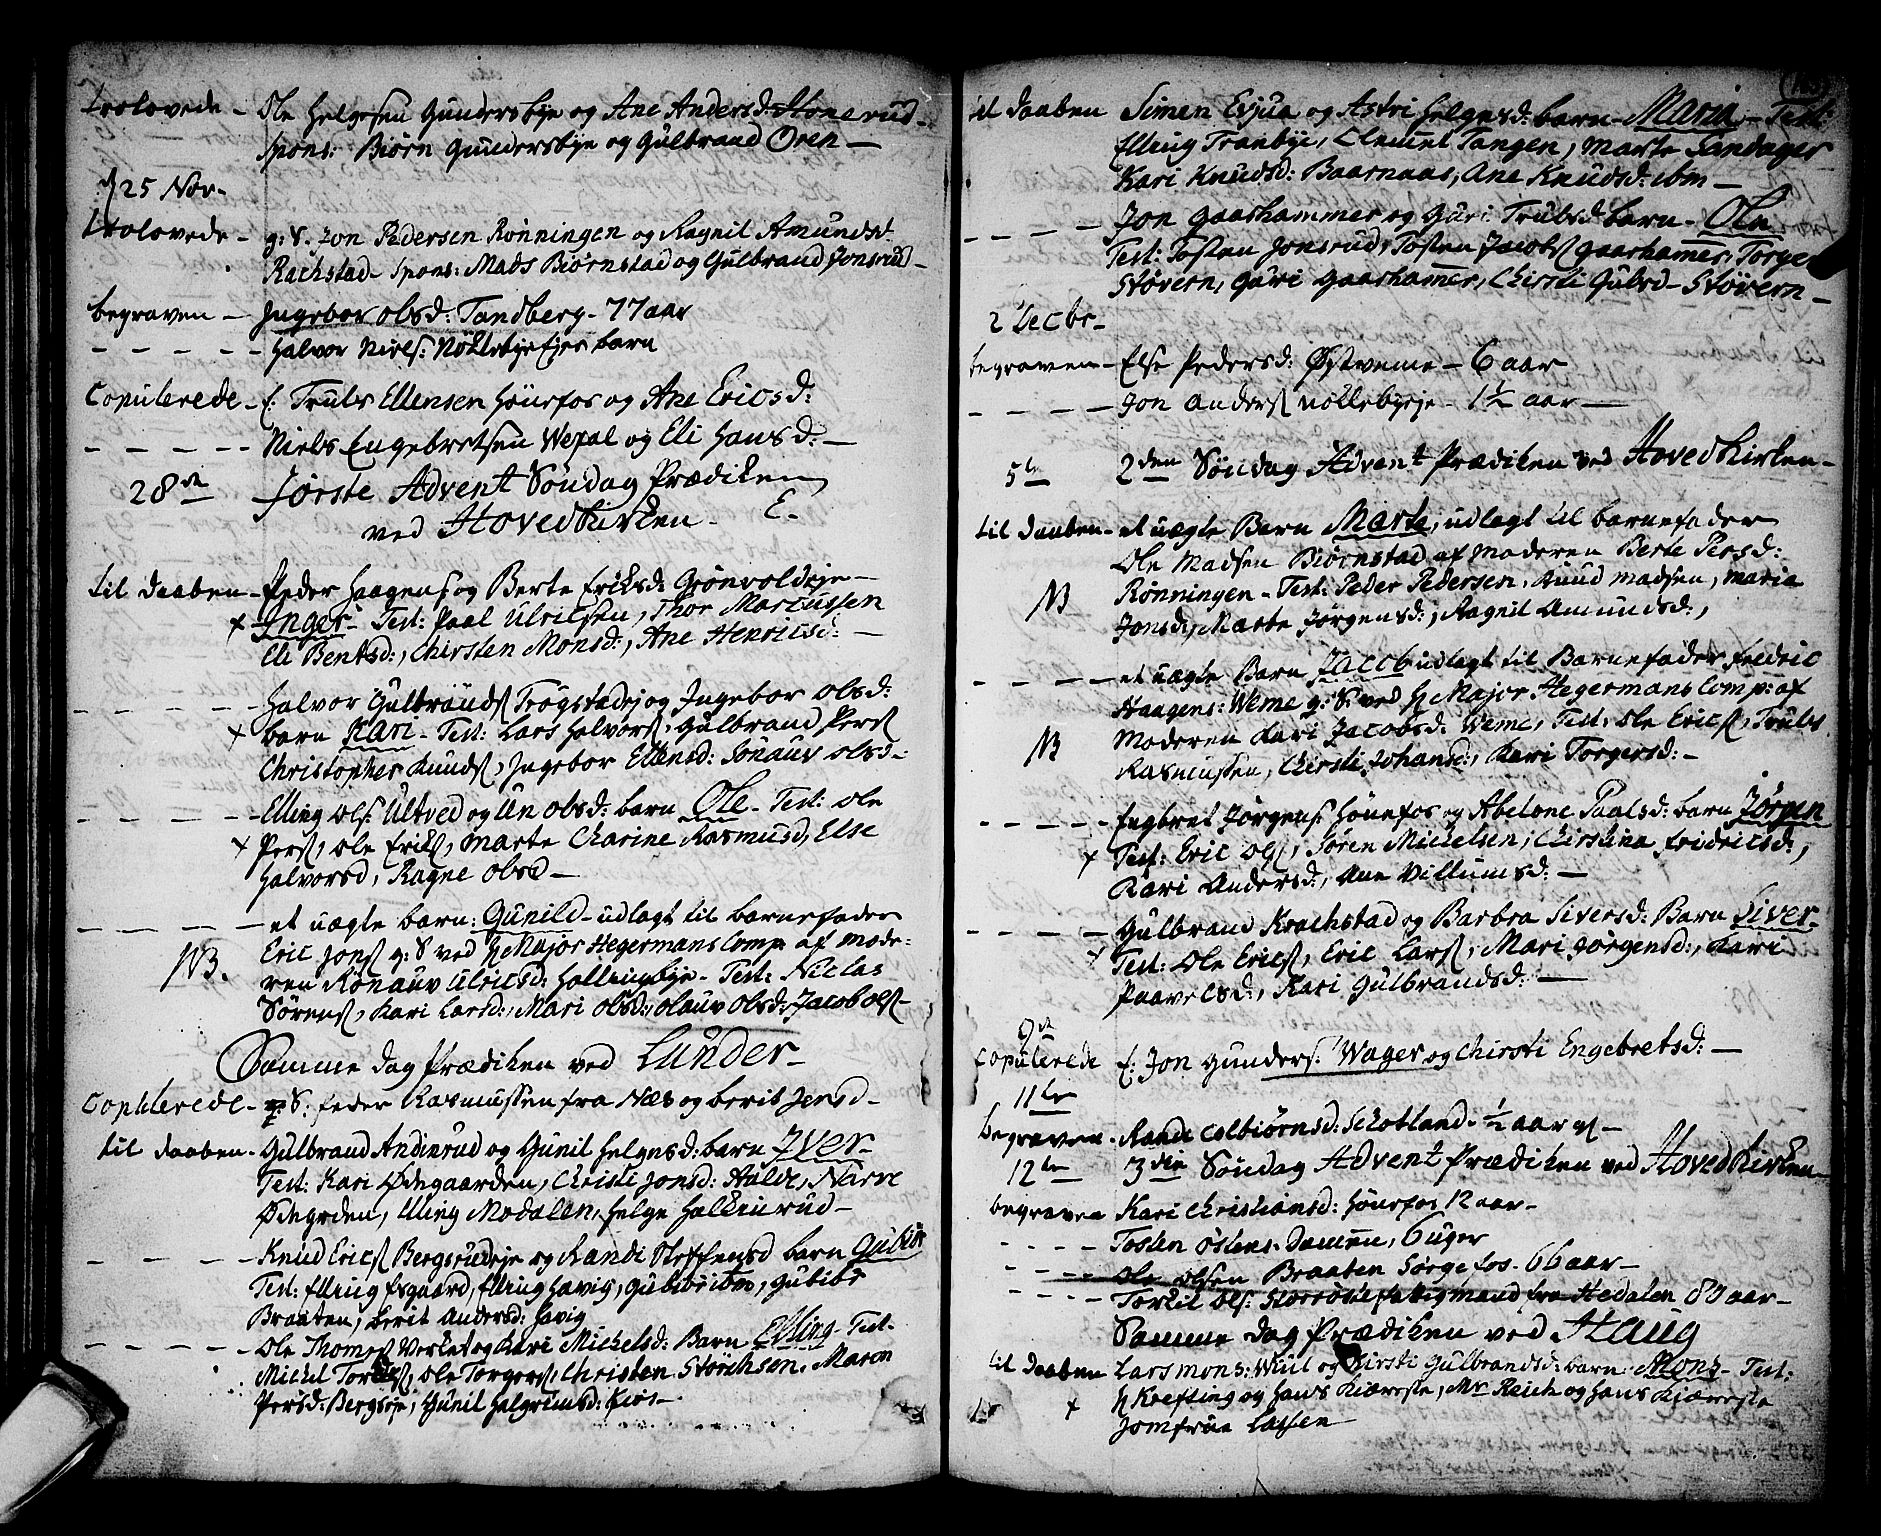 trolovede - Ole Helgesen Gundersbye og Ane Andersd: Honerud -
Spons: Biørn Gundersbye og Gulbrand Oren -
25 Nov -
trolovede - g: S. Jon Pedersen Rønningen og Ragnil Amundsd
Rachstad - Spons: Mads Biørnstad og Gulbrand Jonsrud -
begraven - Ingebor Olsd: Tandberg - 77 aar
- - - - - Halvor Niels: Nøklebye Ejes barn
Copulerede - f: Truls Ellensen Hønefos og Ane Ericsd:
- - - - - Niels Engebretsen Wexal og Eli Hansd: -
28de Første Advent Søndag Prædiken
ved Hovedkirken - E.
til daaben - Peder Haagens og Berte Eriksd: Grønvoldeje -
x Inger - Test: Paal Ulriksen, Thor Marcussen
Eli Bentsd:, Chirsten Monsd:, Ane Henricsd: -
- - - - - Halvor Gulbrands Trøgstadej og Ingebor Olsd:
x barn Kari - Test: Lars Halvors, Gulbrand Pers
Christopher Knuds, Ingebor Ellensd: Sønauv Olsd -
- - - - - Elling Ols: Ultved og Un Olsd: barn Ole - Test: Ole
x Pers, Ole Eriks, Marte Charine Rasmusd, Else
Halvorsd, Ragne Olsd -
- - - - - et uægte barn: Gunild - udlagt til barnefader
NB. Eric Jons g: S ved H Major Hegermans Comp af mode-
ren Rønauv Ulricsd: Holleimbye - Test: Niclas
Sørens, Kari Larsd:, Mari Olsd:, Olauv Olsd: Jacob Ols -
Samme dag Prædiken ved Lunder -
Copulerede - S: Peder Rasmussen fra Næs og Berit Jensd -
til daaben - Gulbrand Andinrud og Gunil Helgesd: barn Iver -
Test: Kari Ødegaarden, Christi Jonsd: Halde, Narve
Ødegrden, Elling Modalen, Helge Halkinrud -
- - - - Knud Erics Bergsrudeje og Randi Steffensd barn Gulbiør
Test: Elling Esgaard, Elling Havig, Gulbiør ibm, Gulbiør
Braaten, Berit Andersd: Havig
- - - - - Ole Thomes Verket og Kari Michelsd: Barn Elling - Test.
Michel Torkels, Ole Torgers, Christen Størchsen, Maren
Persd: Bergseje, Gunil Halgrimsd: Kiøs -
til daaben Simen Evjua og Astri Helgesd: barn - Maria - Test:
Elling Tranbye, Clemet Tangen, Marte Sandager
Kari Knudsd: Baarnaas, Ane Knudsd: ibm -
- - - - Jon Gaarhammer og Guri Trulsd barn - Ole
Test: Tosten Jonsrud, Tosten Jacobs Gaarhamer, Torger
Støvern, Guri Gaarhamer, Chirsti Gulbd - Støvern -
2 Decbr -
begraven - Else Pedersd: Østweme - 6 aar
- - - - Jon Anders Nøklebyeje - 1½ aar -
5te 2den Søndag Advent Prædiken ved Hovedkirken -
til daaben - et uægte Barn Marte, udlagt til barnefader
Ole Madsen Biørnstad af Moderen Berte Persd:
NB Rønningen - Test: Peder Pedersen, Knud Madsen, Maria
Jonsd, Marte Jørgensd:, Ragnil Amundsd:,
- - - - et uægte Barn Jacob udlagt til Barnefader Fredric
Haagens: Weme g: S: ved H Major Hegermans Comp: af
NB Moderen Kari Jacobsd: Weme, Test: Ole Erics, Truls
Rasmussen, Chirsti Johansd:, Kari Torgersd: -
- - - - Engbret Jørgens Hønefos og Abelone Paalsd: barn Jørgen
x Test: Eric Ols, Søren Michelsen, Chirstina Fridricsd:,
Kari Andersd:, Ane Villumsd: -
- - - - Gulbrand Krachstad og Barbra Siversd: Barn Siver -
Test: Ole Erics, Eric Lars, Mari Jørgensd:, Kari
Paavelsd:, Kari Gulbrandsd: -
9de
Copulerede f: Jon Gunders: Wager og Chirsti Engebretsd: -
11te
begraven - Randi Colbiørnsd: Schotland - ½ aar gl -
12te 3die Søndag Advent Prædiken ved Hovedkirken -
begraven Kari Christiansd: Hønefos 12 aar -
- - - - Tosten Ostens: Damen, 6 uger
- - - - Ole Olsen Braaten Sørgefos - 66 aar -
- - - - Torkil Ols: fattigmand fra Hedalen 80 aar -
Samme dag Prædiken ved Haug
til daaben Lars Mons: Wiul og Kirsti Gulbrandsd: barn - Mons - Test:
x H Krefting og Hans Kiæreste, Mr Reich og Hans Kiæreste
Jomfrue Lassen